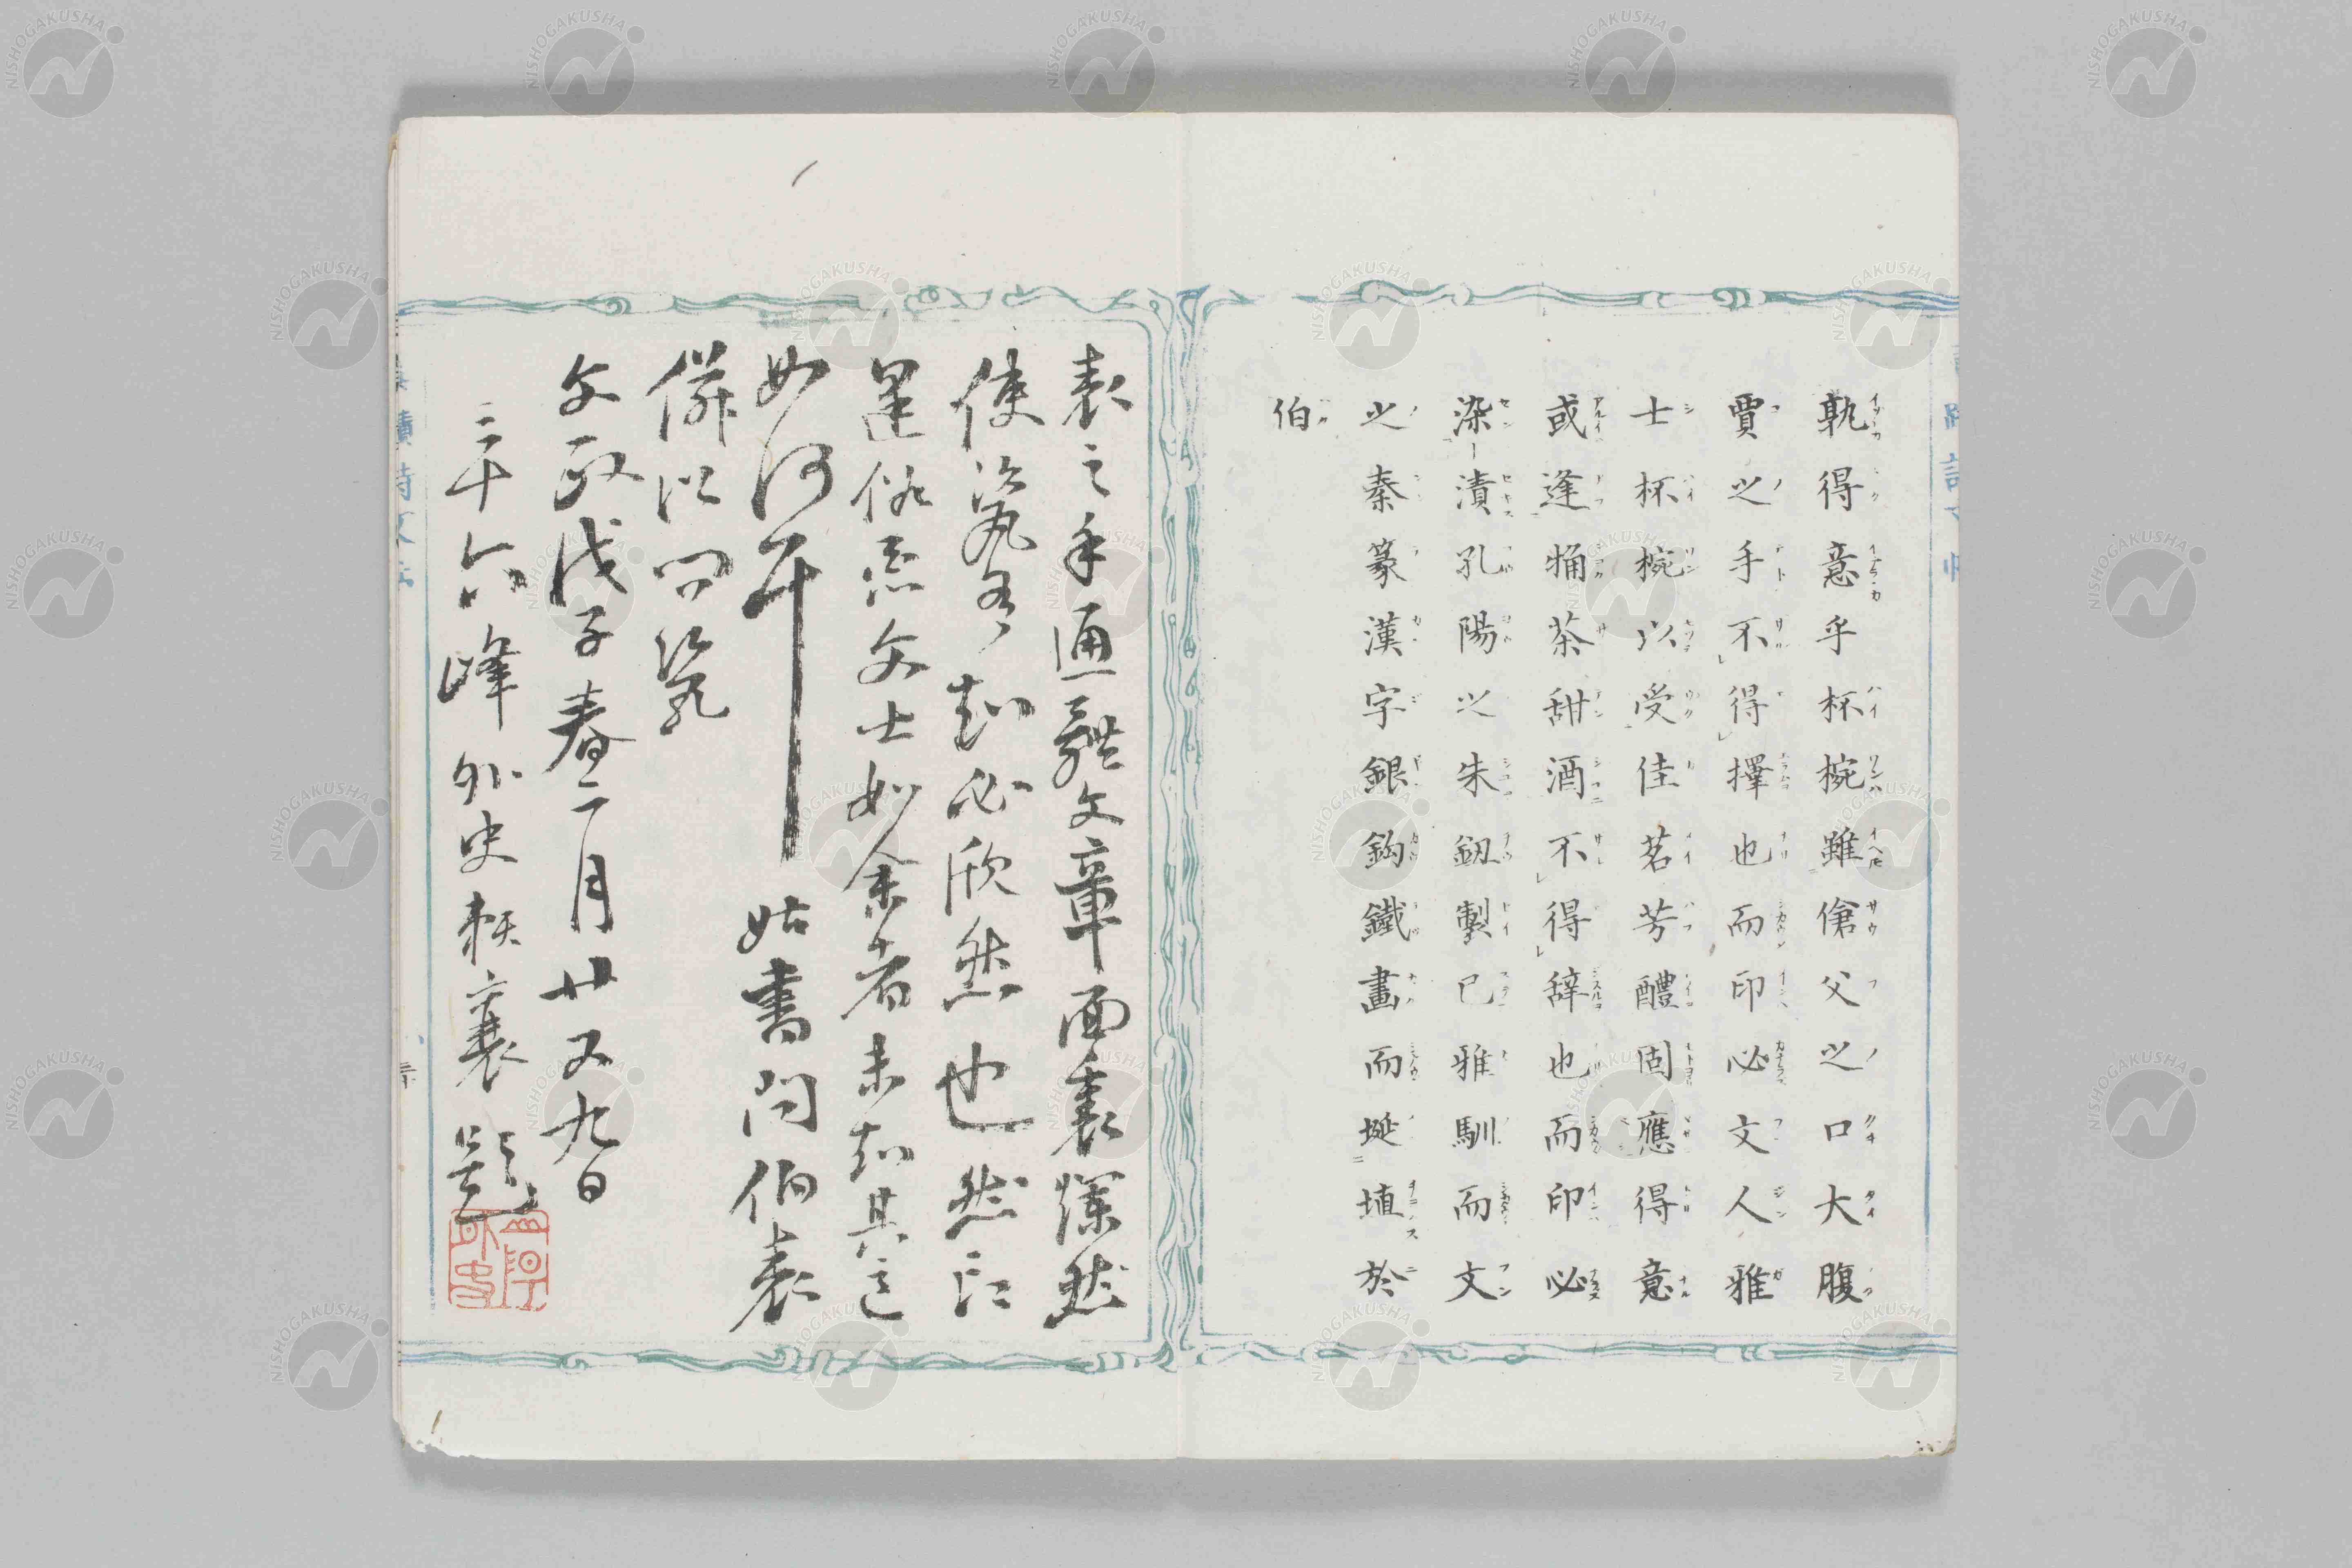 孰得意乎杯椀雖傖父之口大腹
賈之手不得擇也而印必文人雅
士杯椀以受佳茗芳醴固應得意
或逢觕茶甜酒不得辞也而印必
染漬孔陽之朱鈕製已雅馴而文
之秦篆漢字銀鉤鐵畫而埏埴於
伯
表之手通體文章面裏爛然
使瓷有知必欣然也然所
逢俗惡文士如余者未知其意
如何耳姑書問伯表
併以問瓷
文政戊子春二月廿又九日
三十六峰外史頼襄題
山陽外史
NISHOGAKUSHA